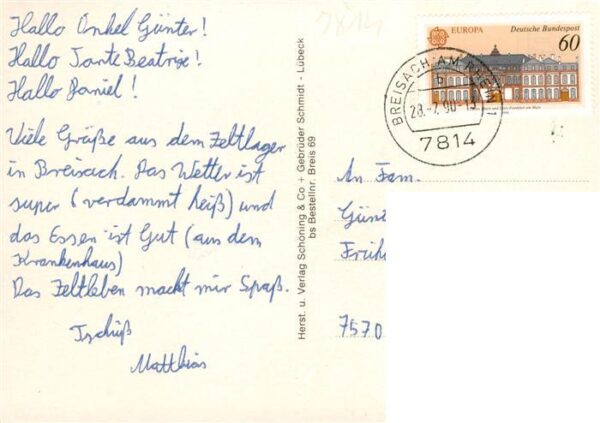 Hallo Onkel Günter!
Hallo Tante Beatrixe!
Hallo Daniel!
Viele Grüße aus dem Zeltlager
in Breisach. Das Wetter ist
super (verdammt heiß) und
das Essen ist Gut (aus dem
Krankenhaus)
Das Zeltleben macht mir Spaß.
Tschüß
Matthias
7814
Herst. u. Verlag Schöning & Co + Gebrüder Schmidt - Lübeck
bs Bestellnr. Breis 69
EUROPA Deutsche Bundespost
60
BREISACH AM RHEIN 1
b
28.-7.90-13
7814
An Fam.
Günt
Früh
7570